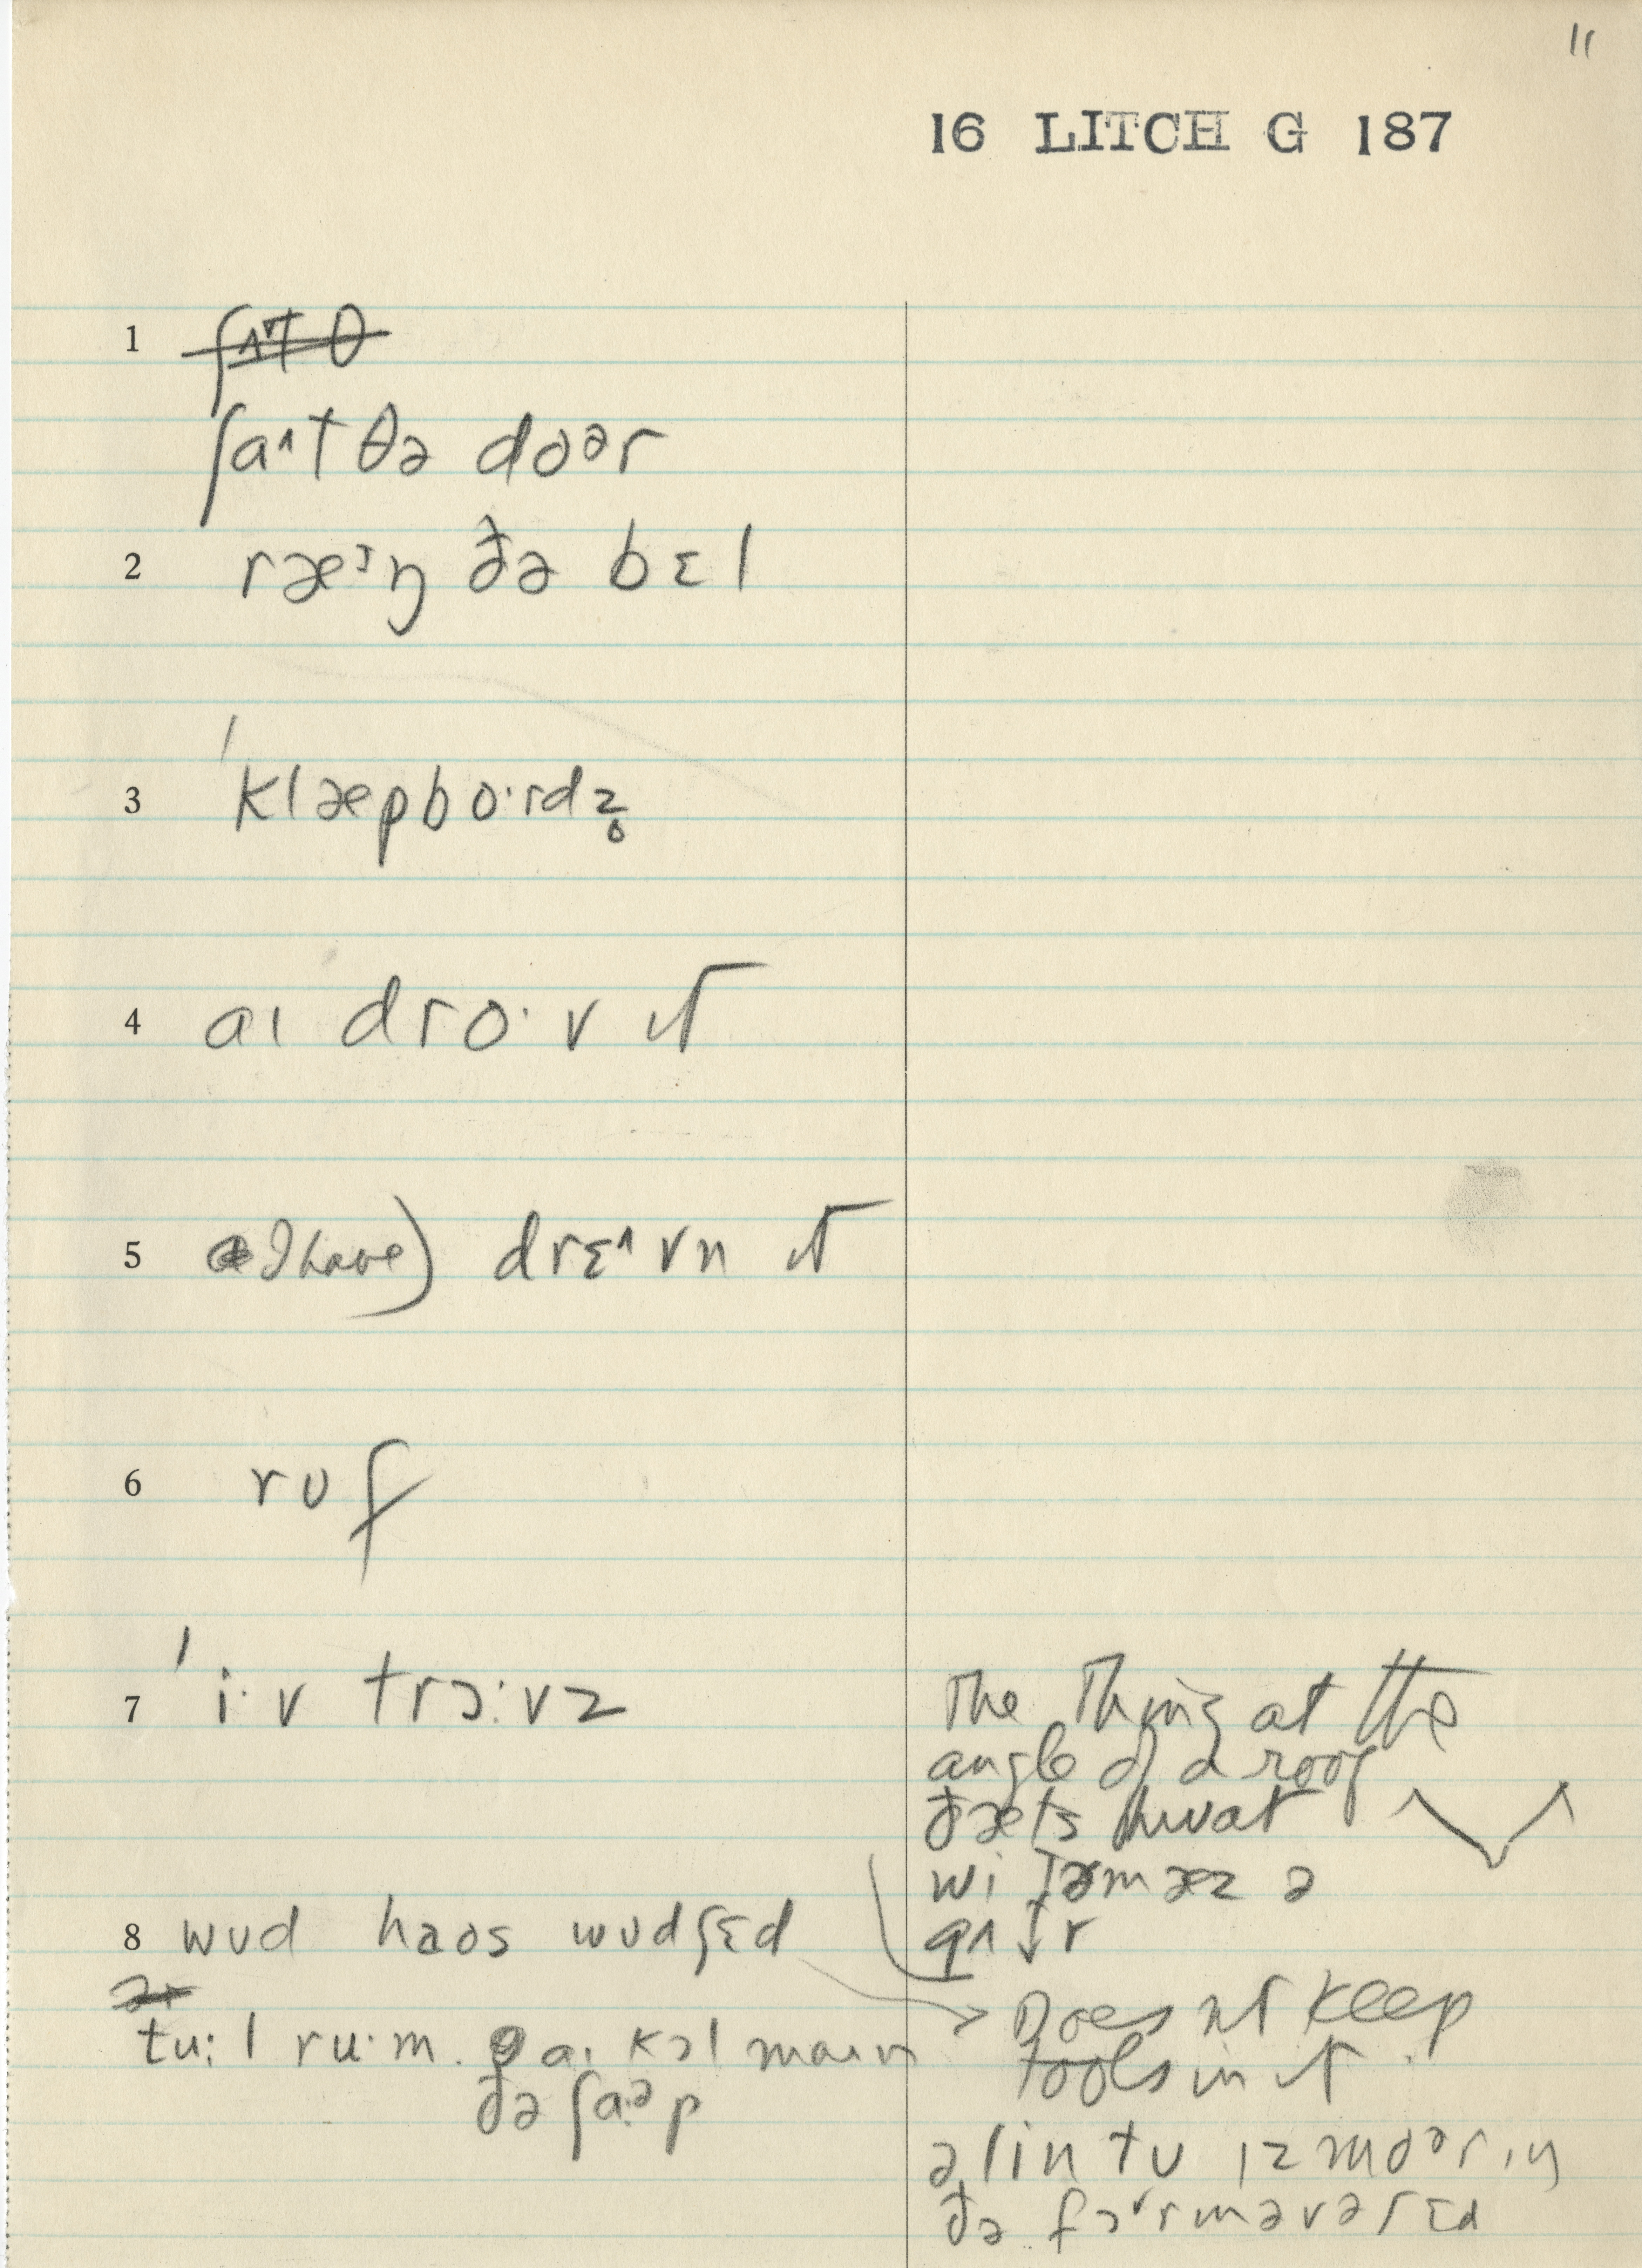 11
16 LITCH G 187
1
ʃaˆt θə doər
2 ræᶦŋ ðə bɛl
3 ˈklæpbo·rdz̥
4 aɪ dro·v ɪt
5 I have) drɛˆvn ɪt
6 rʊf
7 ˈi·v trɔ:vz
8 wʊd haʊs wʊdʃɛd
tu:l ru·m. aɪ kɔl maɪn
ðə ʃa·ᵊp
The thing at the
angle of a roof
ðæts hwat
wi
Does nt keep
tools in it
ə lin tu ɪz moər ɪŋ
ðə fɔrm əv ə ʃɛd